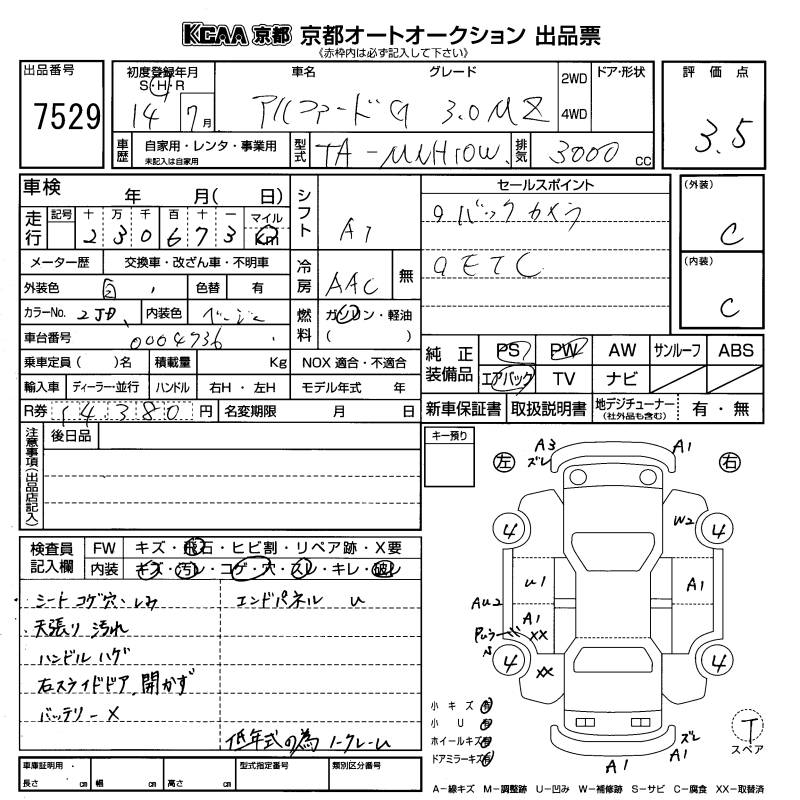 KCAA 京都 京都オートオークション 出品票
《赤枠内は必ず記入して下さい》
出品番号
7529
初度登録年月
S・H・R
14 7月
車名 グレード
アルファードG 3.0 MZ
2WD
4WD
ドア・形状
評価点
3.5
車歴
自家用・レンタ・事業用
未記入は自家用
型式
TA-MNH10W
排気
3000 cc
車検 年 月( 日)
走行
記号 十 万 千 百 十 一 マイル
2 3 0 6 7 3 km
メーター歴 交換車・改ざん車・不明車
外装色 色替 有
カラーNo. 2JD 内装色 ベージュ
車台番号 0004736
乗車定員( )名 積載量 Kg
輸入車 ディーラー・並行 ハンドル 右H・左H
R券 14380 円 名変期限 月 日
シフト
A1
冷房
AAC 無
燃料
ガソリン・軽油
( )
NOX 適合・不適合
モデル年式 年
セールスポイント
バックカメラ
ETC
(外装)
C
(内装)
C
純正装備品
PS PW AW サンルーフ ABS
エアバック TV ナビ
新車保証書 取扱説明書 地デジチューナー
(社外品も含む)
有・無
注意事項(出品店記入)
後日品
キー預り
検査員記入欄
FW キズ・飛石・ヒビ割・リペア跡・X要
内装 キズ・汚レ・コゲ・穴・スレ・キレ・破レ
シートコゲ穴、しみ
天張り汚れ
ハンドルハゲ
右スライドドア、開かず
バッテリーX
エンドパネル U
低年式の為ノークレーム
左
右
A3
ズレ
A1
4
W2
4
U1
A1
AU2
A1
XX
4
XX
4
小キズ 有
小U 有
ホイールキズ 有
ドアミラーキズ 有
A1
ズレ
A1
T
スペア
車庫証明用
長さ cm 幅 cm 高さ cm
型式指定番号
類別区分番号
A−線キズ M−調整跡 U−凹み W−補修跡 S−サビ C−腐食 XX−取替済